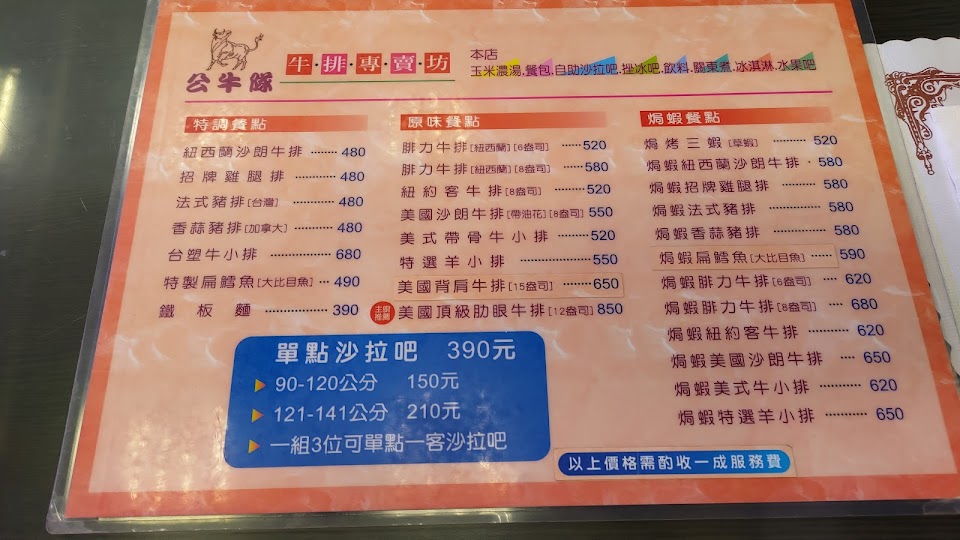 公牛隊
牛排專賣坊
本店
玉米濃湯.餐包.自助沙拉吧.挫冰吧.飲料.關東煮.冰淇淋.水果吧
特調餐點
紐西蘭沙朗牛排 ········ 480
招牌雞腿排 ·············· 480
法式豬排[台灣] ·············· 480
香蒜豬排[加拿大] ··········· 480
台塑牛小排 ················ 680
特製扁鱈魚[大比目魚] ··· 490
鐵板麵 ················· 390
原味餐點
腓力牛排[紐西蘭][6盎司] ······ 520
腓力牛排[紐西蘭][8盎司] ······· 580
紐約客牛排[8盎司] ········· 520
美國沙朗牛排[帶油花][8盎司] 550
美式帶骨牛小排 ········· 520
特選羊小排 ···················· 550
美國背肩牛排[15盎司] ········ 650
主廚推薦
美國頂級肋眼牛排[12盎司] 850
焗蝦餐點
焗烤三蝦[草蝦] ·········· 520
焗蝦紐西蘭沙朗牛排 · 580
焗蝦招牌雞腿排 ·········· 580
焗蝦法式豬排 ················ 580
焗蝦香蒜豬排 ··············· 580
焗蝦扁鱈魚[大比目魚] ······ 590
焗蝦腓力牛排[6盎司] ···· 620
焗蝦腓力牛排[8盎司] ···· 680
焗蝦紐約客牛排 ·········· 620
焗蝦美國沙朗牛排 ···· 650
焗蝦美式牛小排 ··········· 620
焗蝦特選羊小排 ··········· 650
單點沙拉吧 390元
90-120公分 150元
121-141公分 210元
一組3位可單點一客沙拉吧
以上價格需酌收一成服務費